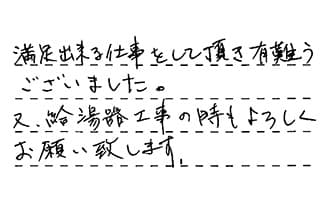 満足出来る仕事をして頂き有難う
ございました。
又、給湯路工事の時もよろしく
お願い致します。